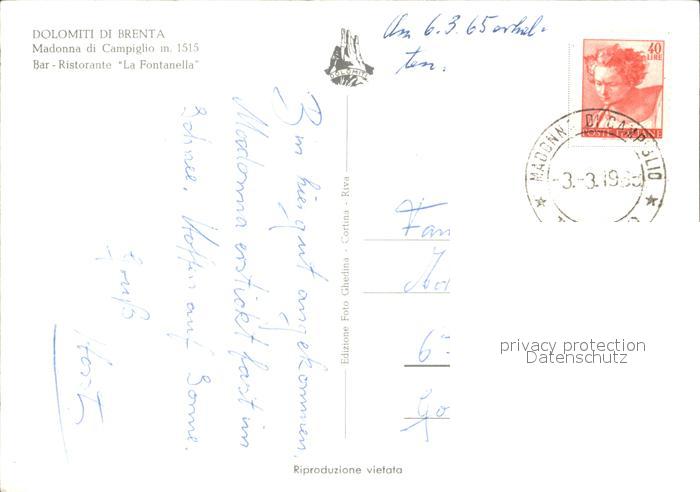 DOLOMITI DI BRENTA
Madonna di Campiglio m. 1515
Bar - Ristorante "La Fontanella"
DOLOMITI
Am 6.3.65 erhal-
ten.
40
LIRE
POSTE ITALIANE
MADONNA DI CAMPIGLIO
-3.-3.1965
Bin hier gut angekommen.
Madonna erstickt fast im
Schnee. Hoffen auf Sonne.
Gruß
Horst
Edizione Foto Ghedina - Cortina - Riva
Fam
6
Go
privacy protection
Datenschutz
Riproduzione vietata